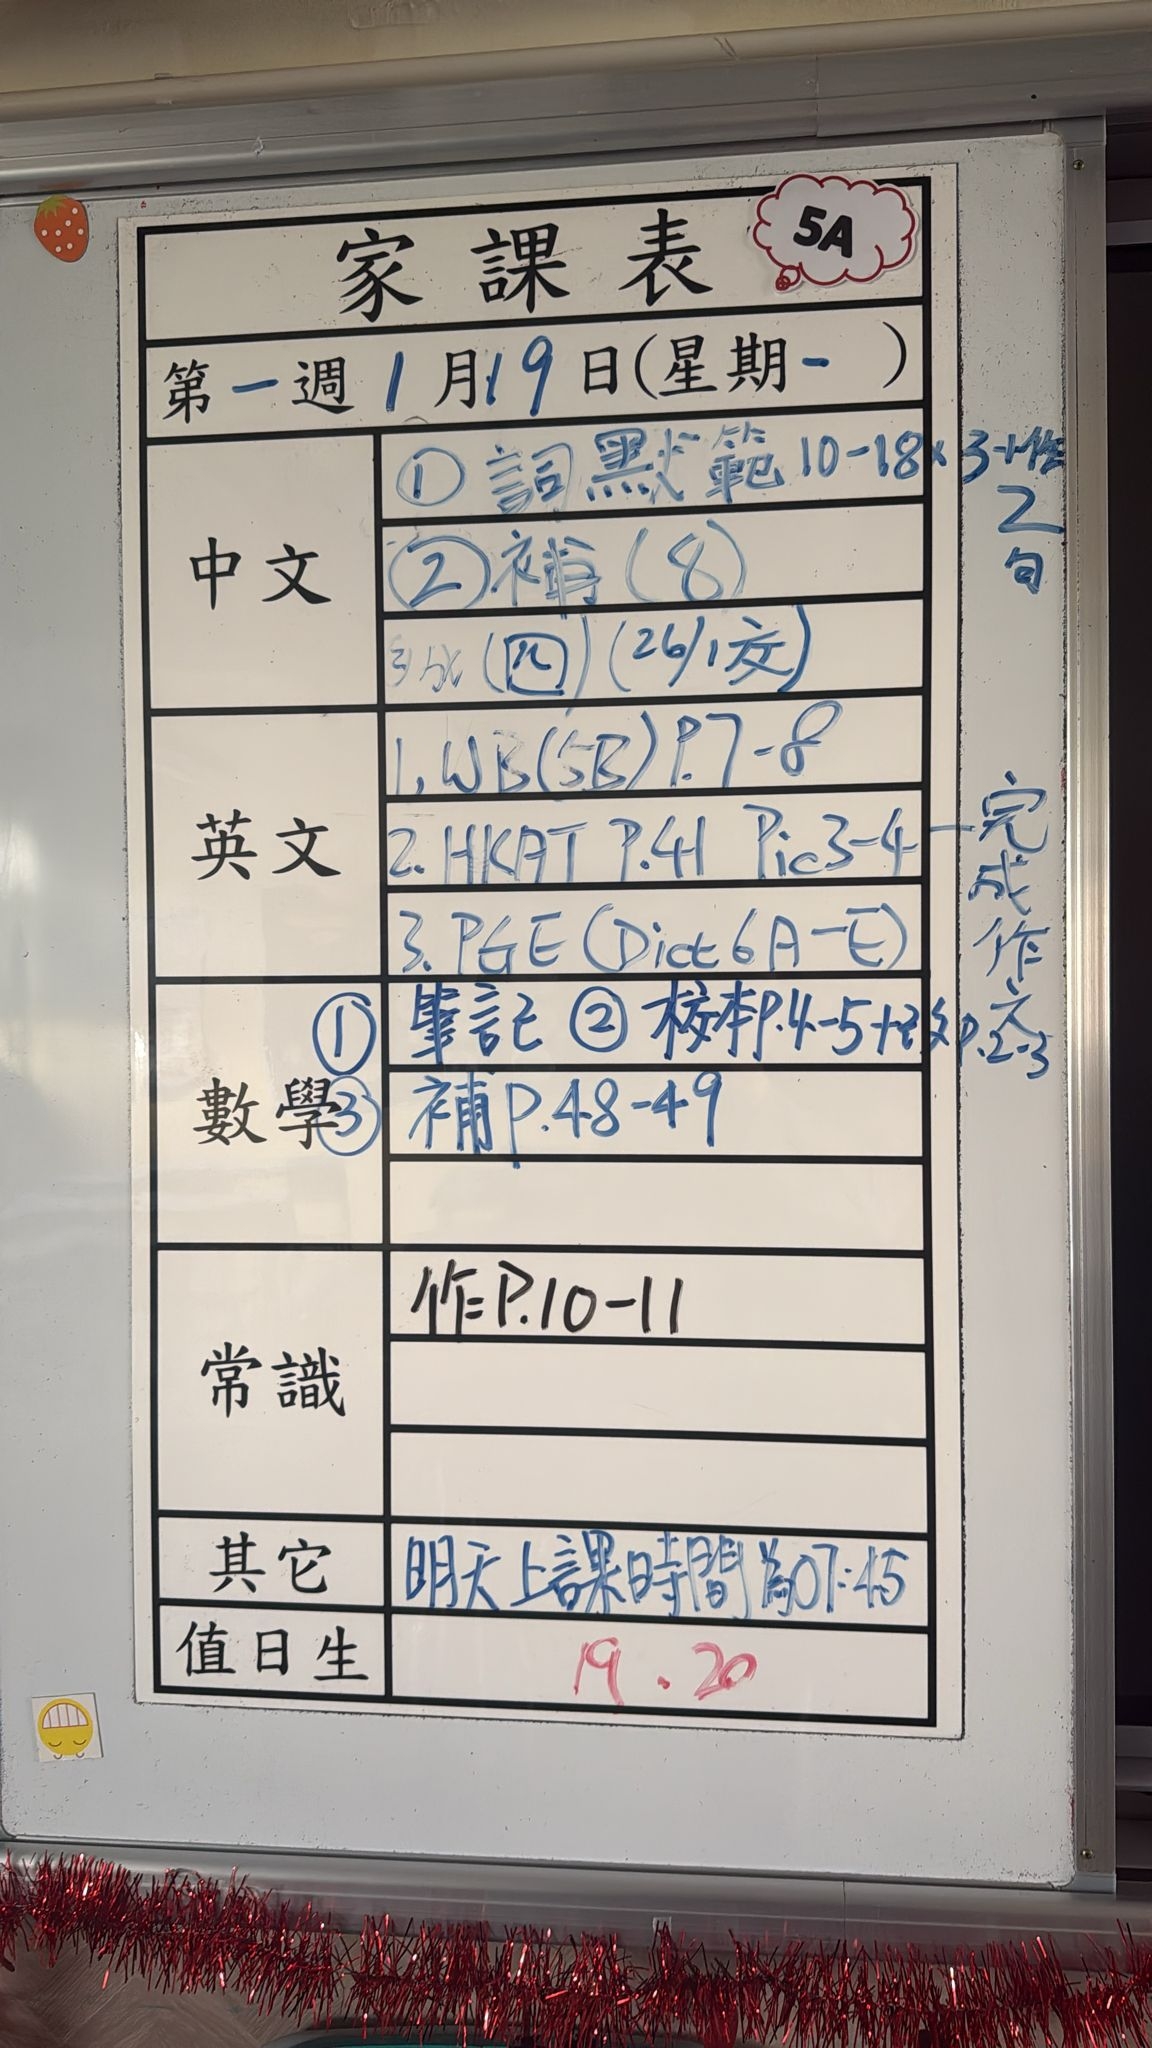 家課表
5A
第一週 1月19日(星期一)
中文
① 詞默範 10-18×3+作2句
② 補(8)
(四)(26/1交)
英文
1. WB(5B) P.7-8
2. HKAT P.41 Pic3-4 — 完成作文
3. PGE (Dict 6A-E)
數學
① 筆記 ② 校本P.4-5+改P.2-3
③ 補P.48-49
常識
作P.10-11
其它
明天上課時間為07:45
值日生
19.20